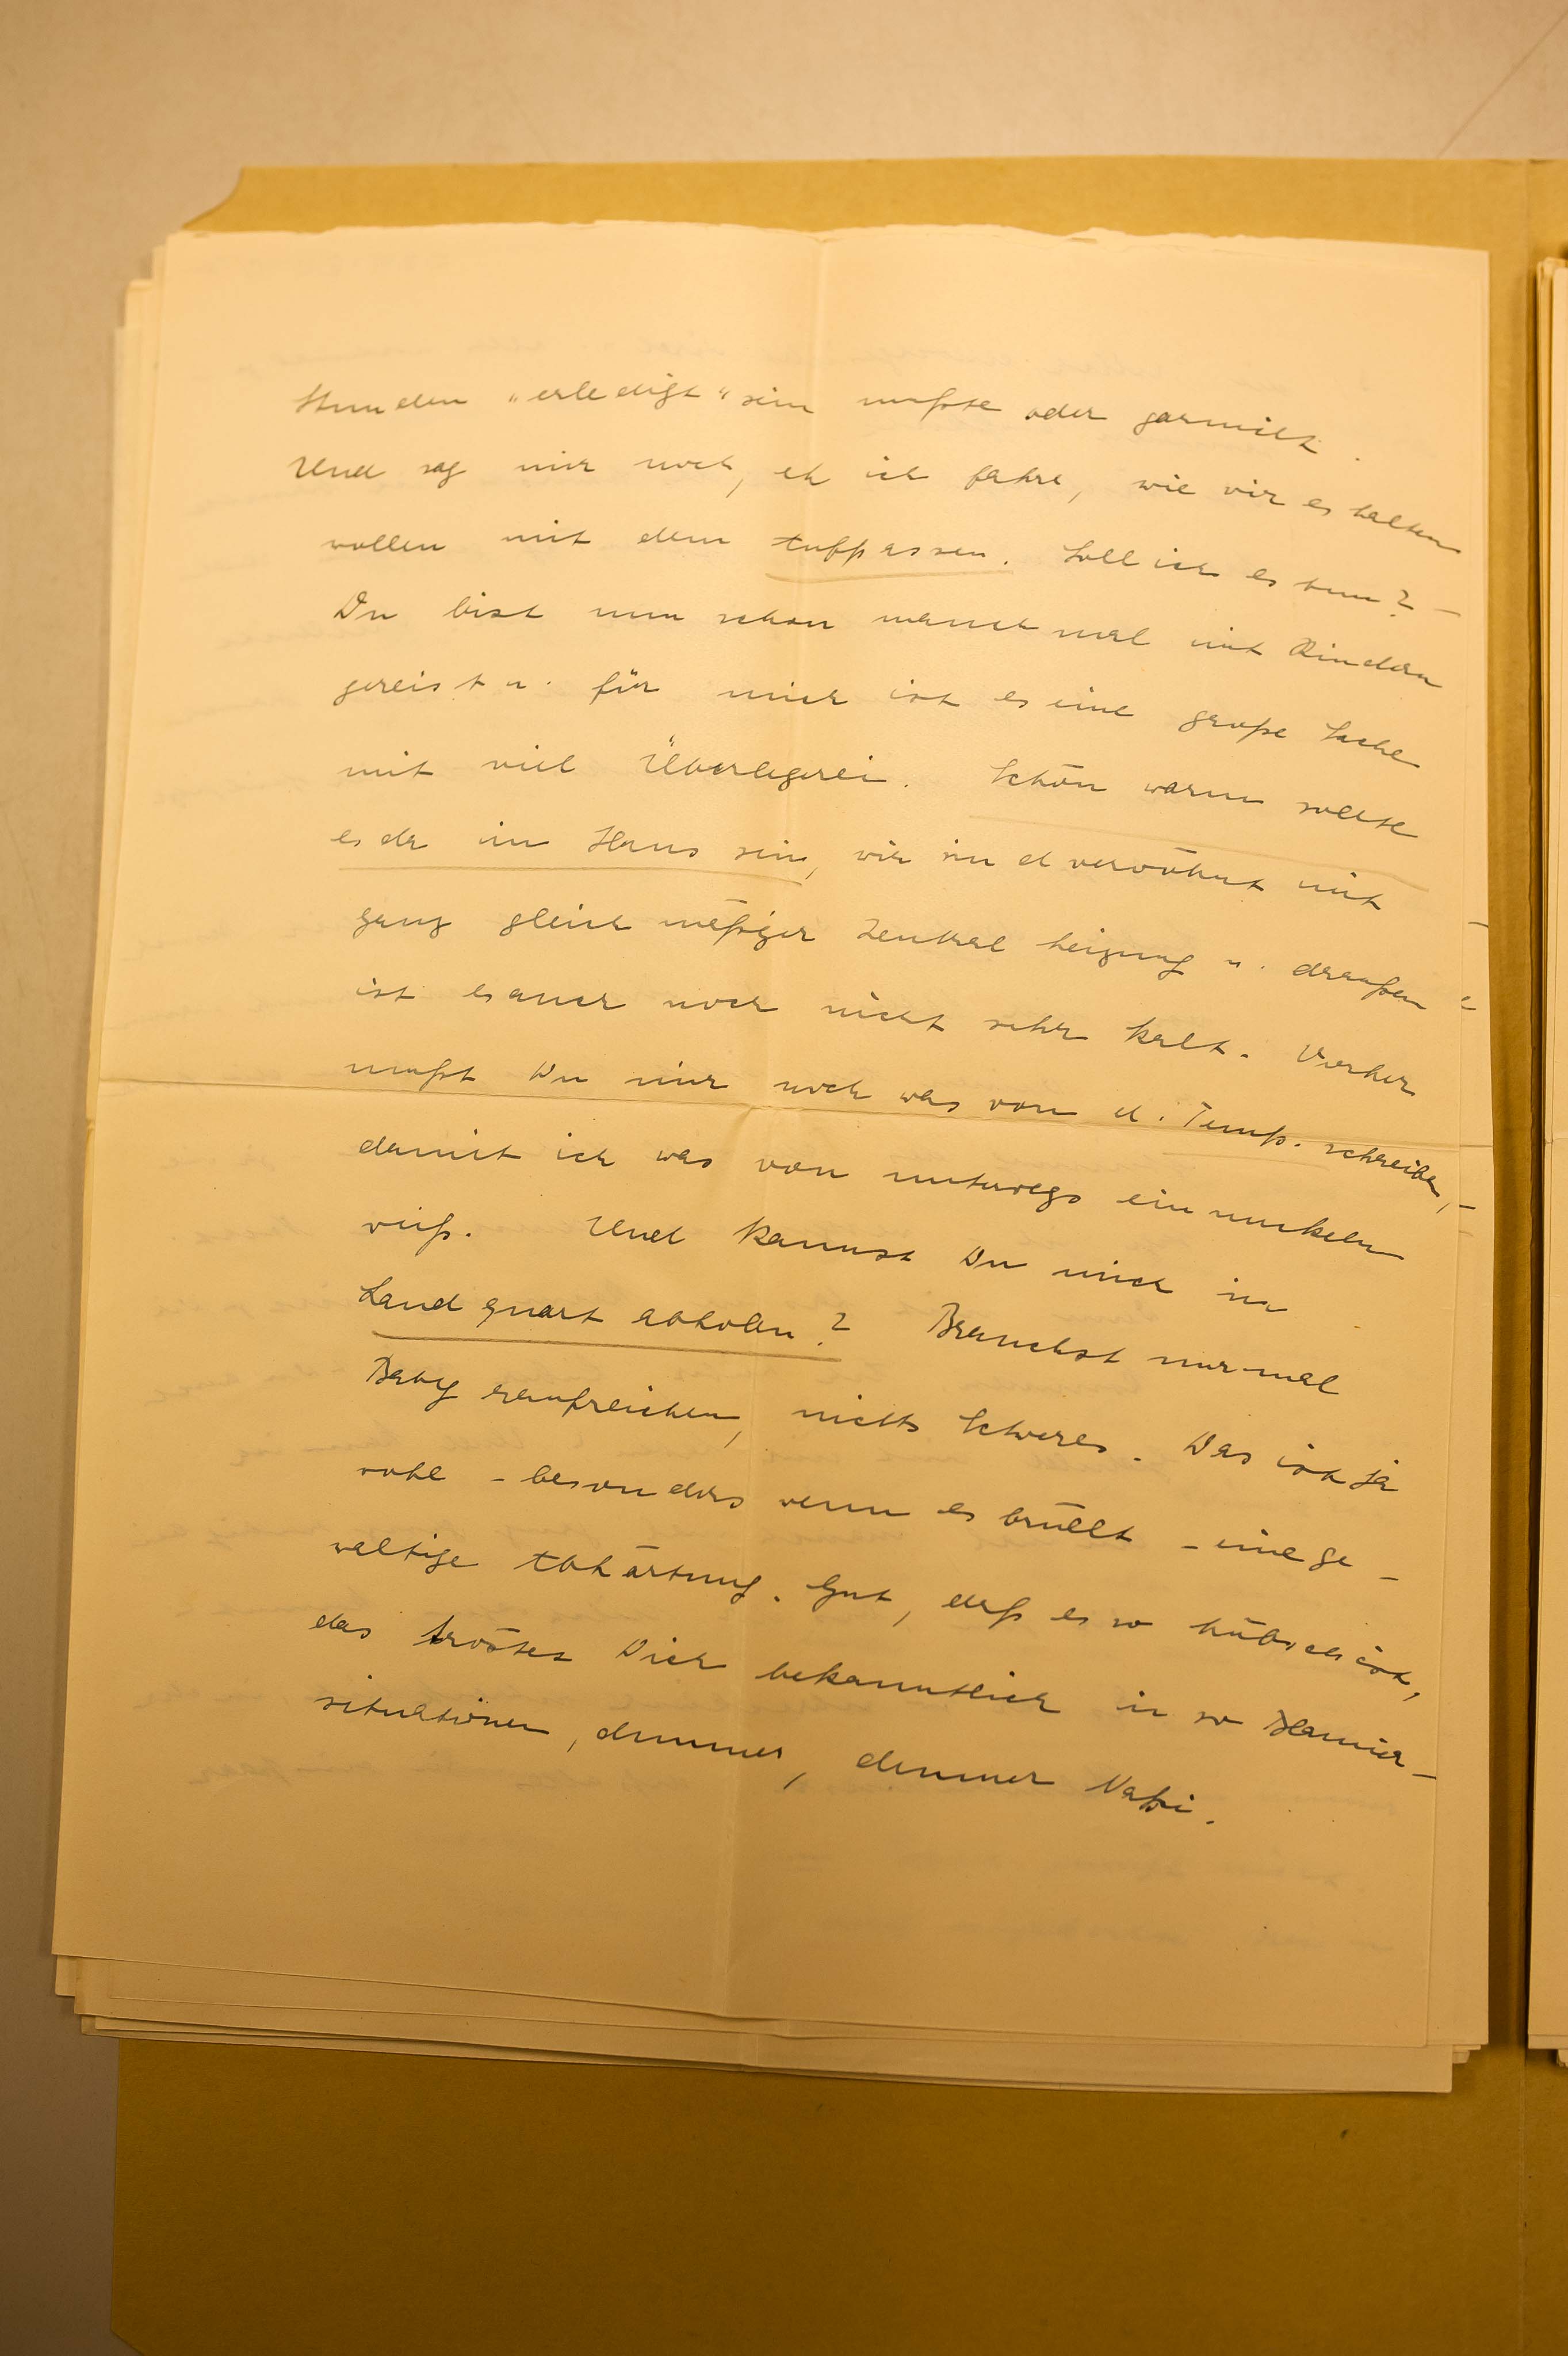 Stunden „erledigt“ sein mußte oder garnicht.
Und sag mir noch, eh ich fahre, wie wir es halten
wollen mit dem Aufpassen. Soll ich es tun? –
Du bist nun schon manchmal mit Kindern
gereist u. für mich ist es eine große Sache
mit viel Überlegerei. Schön warm sollte
es da im Haus sein, wir sind verwöhnt mit
ganz gleichmäßiger Zentralheizung u. draußen
ist es auch noch nicht sehr kalt. Vorher
mußt Du mir noch was von d. Temp. schreiben,
damit ich was von unterwegs einmunkeln
weiß. Und kannst Du mich in
Landquart abholen? Brauchst nur mal
Baby raufreichen, nichts Schweres. Das ist ja
wohl – besonders wenn es brüllt – eine ge-
waltige Abhärtung. Gut, daß es so hübsch ist,
das tröstet Dich bekanntlich in so
situationen, dummer, dummer